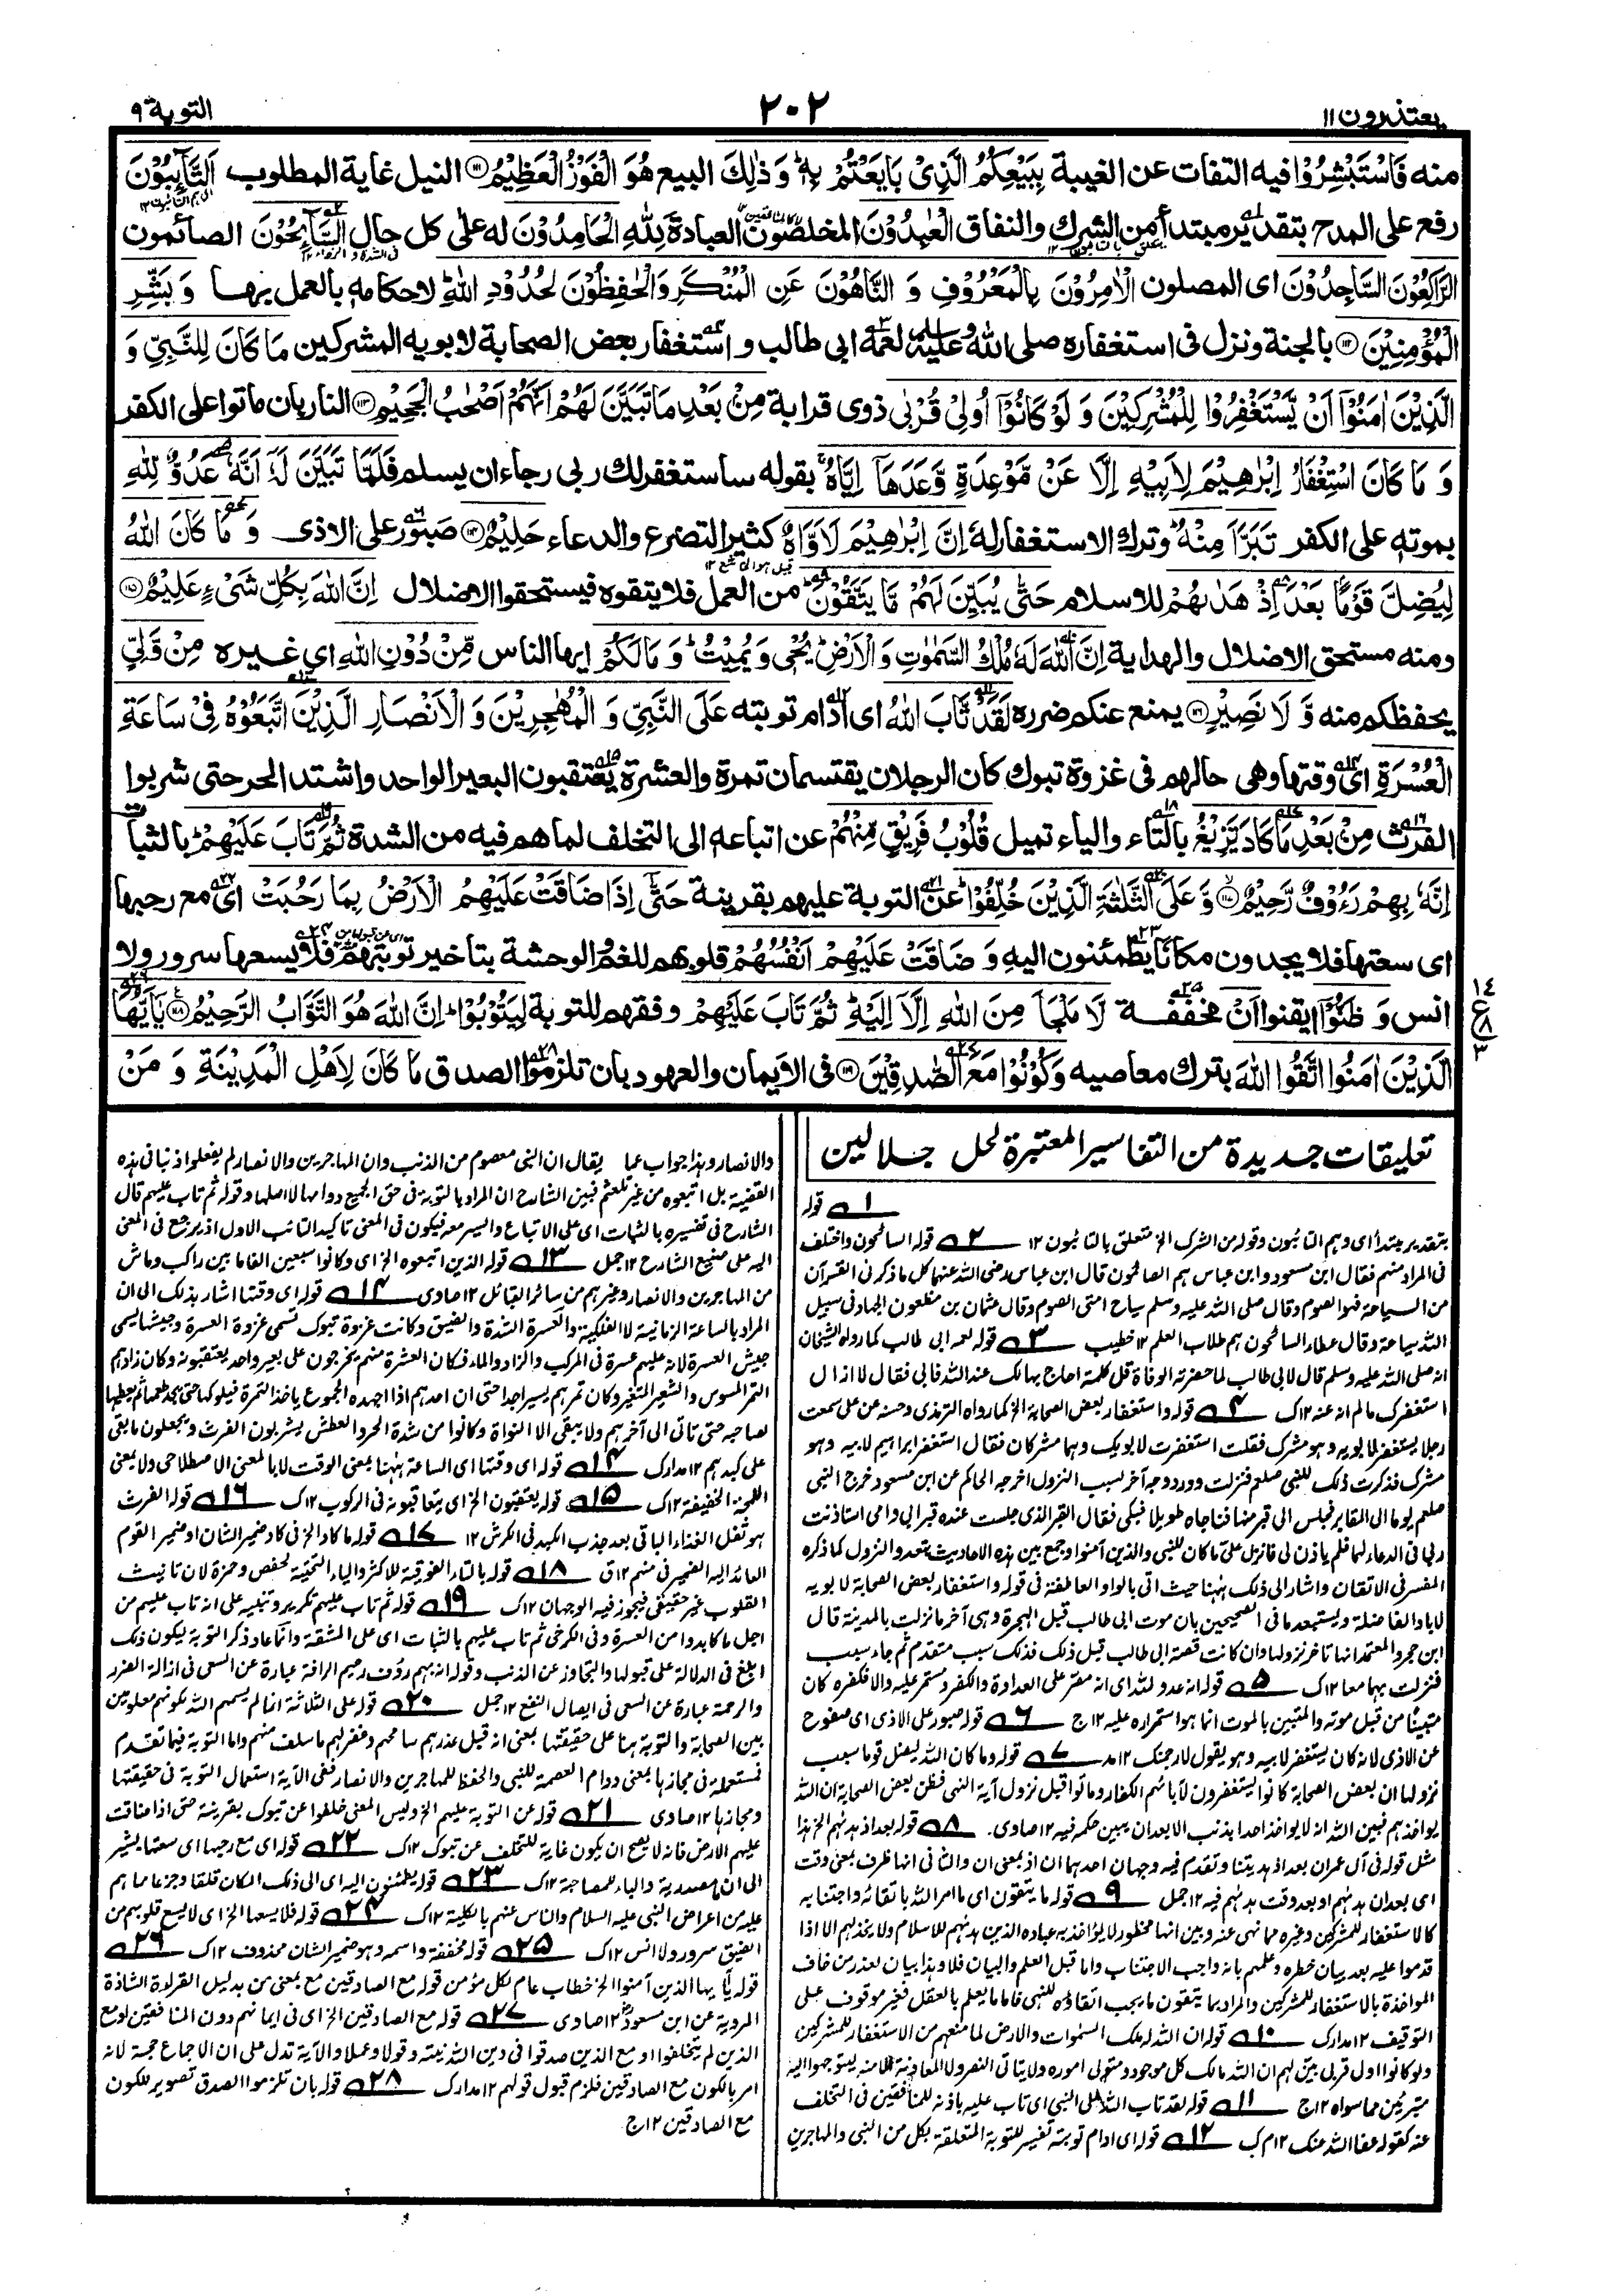 يعتذرون ١١
٢٠٢
التوبة ٩
منه فَاسْتَبْشِرُوْا فيه التفات عن الغيبة بِبَيْعِكُمُ الَّذِىْ بَايَعْتُمْ بِهٖ وَ ذٰلِكَ البيع هُوَ الْفَوْزُ الْعَظِيْمُ ١١١ النيل غاية المطلوب اَلتَّآئِبُوْنَ
رفع على المدح بتقدير مبتدأ من الشرك والنفاق الْعٰبِدُوْنَ المخلصون العبادة لِلّٰهِ الْحَامِدُوْنَ له على كل حال السَّآئِحُوْنَ الصائمون
الرَّاكِعُوْنَ السَّاجِدُوْنَ اى المصلون الْاٰمِرُوْنَ بِالْمَعْرُوْفِ وَ النَّاهُوْنَ عَنِ الْمُنْكَرِ وَالْحٰفِظُوْنَ لِحُدُوْدِ اللّٰهِ لاحكامه بالعمل بها وَ بَشِّرِ
الْمُؤْمِنِيْنَ ١١٢ بالجنة ونزل فى استغفاره صلى الله عليه وسلم لعمه ابى طالب و استغفار بعض الصحابة لابويه المشركين مَا كَانَ لِلنَّبِىِّ وَ
الَّذِيْنَ اٰمَنُوْٓا اَنْ يَّسْتَغْفِرُوْا لِلْمُشْرِكِيْنَ وَ لَوْ كَانُوْٓا اُولِىْ قُرْبٰى ذوى قرابة مِنْۢ بَعْدِ مَا تَبَيَّنَ لَهُمْ اَنَّهُمْ اَصْحٰبُ الْجَحِيْمِ ١١٣ النار بان ماتوا على الكفر
وَ مَا كَانَ اسْتِغْفَارُ اِبْرٰهِيْمَ لِاَبِيْهِ اِلَّا عَنْ مَّوْعِدَةٍ وَّعَدَهَآ اِيَّاهُ بقوله ساستغفر لك ربى رجاء ان يسلم فَلَمَّا تَبَيَّنَ لَهٗٓ اَنَّهٗ عَدُوٌّ لِلّٰهِ
بموته على الكفر تَبَرَّاَ مِنْهُ وترك الاستغفار له اِنَّ اِبْرٰهِيْمَ لَاَوَّاهٌ كثير التضرع والدعاء حَلِيْمٌ ١١٤ صبور على الاذى وَ مَا كَانَ اللّٰهُ
لِيُضِلَّ قَوْمًۢا بَعْدَ اِذْ هَدٰىهُمْ للاسلام حَتّٰى يُبَيِّنَ لَهُمْ مَّا يَتَّقُوْنَ من العمل فلا يتقوه فيستحقوا الاضلال اِنَّ اللّٰهَ بِكُلِّ شَىْءٍ عَلِيْمٌ ١١٥
ومنه مستحق الاضلال والهداية اِنَّ اللّٰهَ لَهٗ مُلْكُ السَّمٰوٰتِ وَ الْاَرْضِ يُحْىٖ وَ يُمِيْتُ وَ مَا لَكُمْ ايها الناس مِّنْ دُوْنِ اللّٰهِ اى غيره مِنْ وَّلِىٍّ
يحفظكم منه وَّ لَا نَصِيْرٍ ١١٦ يمنع عنكم ضرره لَقَدْ تَّابَ اللّٰهُ اى ادام توبته عَلَى النَّبِىِّ وَ الْمُهٰجِرِيْنَ وَ الْاَنْصَارِ الَّذِيْنَ اتَّبَعُوْهُ فِىْ سَاعَةِ
الْعُسْرَةِ اى وقتها وهى حالهم فى غزوة تبوك كان الرجلان يقتسمان تمرة والعشرة يعتقبون البعير الواحد واشتد الحر حتى شربوا
الفرث مِنْۢ بَعْدِ مَا كَادَ يَزِيْغُ بالتاء والياء تميل قُلُوْبُ فَرِيْقٍ مِّنْهُمْ عن اتباعه الى التخلف لما هم فيه من الشدة ثُمَّ تَابَ عَلَيْهِمْ بالثبات
اِنَّهٗ بِهِمْ رَءُوْفٌ رَّحِيْمٌ ١١٧ وَّ عَلَى الثَّلٰثَةِ الَّذِيْنَ خُلِّفُوْا عن التوبة عليهم بقرينة حَتّٰٓى اِذَا ضَاقَتْ عَلَيْهِمُ الْاَرْضُ بِمَا رَحُبَتْ اى مع رحبها
اى سعتها فلا يجدون مكانا يطمئنون اليه وَ ضَاقَتْ عَلَيْهِمْ اَنْفُسُهُمْ قلوبهم للغم والوحشة بتاخير توبتهم فلا يسعها سرور ولا
انس وَ ظَنُّوْٓا ايقنوا اَنْ مخففة لَّا مَلْجَاَ مِنَ اللّٰهِ اِلَّآ اِلَيْهِ ثُمَّ تَابَ عَلَيْهِمْ وفقهم للتوبة لِيَتُوْبُوْا اِنَّ اللّٰهَ هُوَ التَّوَّابُ الرَّحِيْمُ ١١٨ يٰٓاَيُّهَا
الَّذِيْنَ اٰمَنُوا اتَّقُوا اللّٰهَ بترك معاصيه وَ كُوْنُوْا مَعَ الصّٰدِقِيْنَ ١١٩ فى الايمان والعهود بان تلزموا الصدق مَا كَانَ لِاَهْلِ الْمَدِيْنَةِ وَ مَنْ
١٤
ع
٨
٣
تعليقات جديدة من التفاسير المعتبرة لحل جلالين
١ قوله
بتقدير مبتدأ اى وهم التائبون وقوله من الشرك الخ متعلق بالتائبون ١٢ ٢ قوله السائحون واختلف
فى المراد منهم فقال ابن مسعود وابن عباس هم الصائمون قال ابن عباس رضى الله عنهما كل ما ذكر فى القرآن
من السياحة فهو الصوم وقال صلى الله عليه وسلم سياح امتى الصوم وقال عثمان بن مظعون الجهاد فى سبيل
الله سياحة وقال عطاء السائحون هم طلاب العلم ١٢ خطيب ٣ قوله لعمه ابى طالب كما رواه الشيخان
انه صلى الله عليه وسلم قال لابى طالب لما حضرته الوفاة قل كلمة احاج بها لك عند الله فابى فقال لا ازال
استغفر لك ما لم انه عنه ١٢ ك ٤ قوله واستغفار بعض الصحابة الخ كما رواه الترمذى وحسنه عن على سمعت
رجلا يستغفر لابويه وهو مشرك فقلت استغفرت لابويك وهما مشركان فقال استغفر ابراهيم لابيه وهو
مشرك فذكرت ذلك للنبى صلعم فنزلت وورد وجه آخر لسبب النزول اخرجه الحاكم عن ابن مسعود خرج النبى
صلعم يوما الى المقابر فجلس الى قبر منها فناجاه طويلا فبكى فقال القبر الذى جلست عنده قبر ابى وامى استاذنت
ربى فى الدعاء لها فلم ياذن لى فانزل على ما كان للنبى والذين آمنوا وجمع بين هذه الاحاديث بتعدد النزول كما ذكره
المفسر فى الاتقان واشار الى ذلك ههنا حيث اتى بالواو العاطفة فى قوله واستغفار بعض الصحابة لابويه
لا باو الفاصلة ويستبعد ما فى الصحيحين بان موت ابى طالب قبل الهجرة وهى آخر ما نزلت بالمدينة قال
ابن حجر والمعتمد انها تاخر نزولها وان كانت قصة ابى طالب قبل ذلك فذلك سبب متقدم ثم جاء سبب
فنزلت بهما معا ١٢ ك ٥ قوله انه عدو لله اى انه مصر على العداوة والكفر ومستمر عليه والا فكفره كان
متبينا من قبل موته والمتبين بالموت انما هو استمراره عليه ١٢ ج ٦ قوله صبور على الاذى اى صفوح
عن الاذى لانه كان يستغفر لابيه وهو يقول لارجمنك ١٢ مد ٧ قوله وما كان الله ليضل قوما سبب
نزولها ان بعض الصحابة كانوا يستغفرون لآبائهم الكفار وماتوا قبل نزول آية النهى فظن بعض الصحابة ان الله
يواخذهم فبين الله انه لا يواخذ احدا بذنب الا بعد ان يبين حكمه فيه ١٢ صاوى. ٨ قوله بعد اذ هدىهم الخ هذا
مثل قوله فى آل عمران بعد اذ هديتنا وتقدم فيه وجهان احدهما ان اذ بمعنى ان والثانى انها ظرف بمعنى وقت
اى بعد ان هداهم او بعد وقت هداهم فيه ١٢ جمل ٩ قوله ما يتقون اى ما امر الله باتقائه واجتنابه
كالاستغفار للمشركين وغيره مما نهى عنه وبين انها محظور لا يؤاخذ به عباده الذين هداهم للاسلام ولا يخذلهم الا اذا
قدموا عليه بعد بيان خطره وعلمهم بانه واجب الاجتناب واما قبل العلم والبيان فلا وهذا بيان لعذر من خاف
المواخذة بالاستغفار للمشركين والمراد بما يتقون ما يجب اتقاؤه للنهى فاما ما يعلم بالعقل فغير موقوف على
التوقيف ١٢ مدارك ١٠ قوله ان الله له ملك السموات والارض لما منعهم من الاستغفار للمشركين
ولو كانوا اولى قربى بين لهم ان الله مالك كل موجود ومتولى اموره ولا يتاتى النصر ولا المعاونة الا منه ليتوجهوا اليه
متبرئين مما سواه ١٢ ج ١١ قوله لقد تاب الله على النبى اى تاب عليه باذنه للمنافقين فى التخلف
عنه كقوله عفا الله عنك ١٢ م ب ١٢ قوله اى ادام توبته تفسير للتوبة المتعلقة بكل من النبى والمهاجرين
والانصار وهذا جواب عما يقال ان النبى معصوم من الذنب وان المهاجرين والانصار لم يفعلوا ذنبا فى هذه
القضية بل اتبعوه من غير تلعثم فبين الشارح ان المراد بالتوبة فى حق الجميع دوامها لا اصلها وقوله ثم تاب عليهم قال
الشارح فى تفسيره بالثبات اى على الاتباع والسير معه فيكون فى المعنى تاكيد التائب الاول اذ يرجع فى المعنى
اليه على صنيع الشارح ١٢ جمل ١٣ قوله الذين اتبعوه الخ اى وكانوا سبعين الفا ما بين راكب وماش
من المهاجرين والانصار وغيرهم من سائر القبائل ١٢ صاوى ١٤ قوله اى وقتها اشار بذلك الى ان
المراد بالساعة الزمانية لا الفلكية والعسرة الشدة والضيق وكانت غزوة تبوك تسمى غزوة العسرة وجيشها يسمى
جيش العسرة لانه عليهم عسرة فى المركب والزاد والماء فكان العشرة منهم يخرجون على بعير واحد يعتقبونه وكان زادهم
التمر المسوس والشعير المتغير وكان تمرهم يسيرا جدا حتى ان احدهم اذا اجهده الجوع ياخذ التمرة فيلوكها حتى يجد طعمها ثم يعطيها
لصاحبه حتى تاتى الى آخرهم ولا يبقى الا النواة وكانوا من شدة الحر والعطش يشربون الفرث ويجعلون ما بقى
على كبدهم ١٢ مدارك ١٤ قوله اى وقتها اى الساعة ههنا بمعنى الوقت لا بالمعنى الاصطلاحى ولا بمعنى
اللمحة الخفيفة ١٢ ك ١٥ قوله يعتقبون الخ اى يتعاقبونه فى الركوب ١٢ ك ١٦ قوله الفرث
هو ثفل الغذاء الباقى بعد جذب الكبد فى الكرش ١٢ ١٧ قوله ما كاد الخ فى كاد ضمير الشان او ضمير القوم
العائد اليه الضمير فى منهم ١٢ ق ١٨ قوله بالتاء الفوقية للاكثر والياء التحتية لحفص وحمزة لان تانيث
القلوب غير حقيقى فيجوز فيه الوجهان ١٢ ك ١٩ قوله ثم تاب عليهم تكرير وتنبيه على انه تاب عليهم من
اجل ما كابدوا من العسرة وفى الكرخى ثم تاب عليهم بالثبات اى على المشقة وانما عاد ذكر التوبة ليكون ذلك
ابلغ فى الدلالة على قبولها والتجاوز عن الذنب وقوله انه بهم رؤف رحيم الرافة عبارة عن السعى فى ازالة الضرر
والرحمة عبارة عن السعى فى ايصال النفع ١٢ جمل ٢٠ قوله على الثلاثة انما لم يسمهم الله لكونهم معلومين
بين الصحابة والتوبة هنا على حقيقتها بمعنى انه قبل عذرهم سامحهم وغفر لهم ما سلف منهم واما التوبة فيما تقدم
فمستعملة فى مجازها بمعنى دوام العصمة للنبى والحفظ للمهاجرين والانصار ففى الآية استعمال التوبة فى حقيقتها
ومجازها ١٢ صاوى ٢١ قوله عن التوبة عليهم الخ وليس المعنى خلفوا عن تبوك بقرينة حتى اذا ضاقت
عليهم الارض فانه لا يصح ان يكون غاية للتخلف عن تبوك ١٢ ك ٢٢ قوله اى مع رحبها اى سعتها يشير
الى ان ما مصدرية والباء للمصاحبة ١٢ ك ٢٣ قوله يطمئنون اليه اى الى ذلك المكان قلقا وجزعا مما هم
عليه من اعراض النبى عليه السلام والناس عنهم بالكلية ١٢ ك ٢٤ قوله فلا يسعها الخ اى لا يسع قلوبهم من
الضيق سرور ولا انس ١٢ ك ٢٥ قوله مخففة واسمه وهو ضمير الشان محذوف ١٢ ك ٢٦
قوله يا ايها الذين آمنوا الخ خطاب عام لكل مؤمن قوله مع الصادقين مع بمعنى من بدليل القراءة الشاذة
المروية عن ابن مسعود ١٢ صاوى ٢٧ قوله مع الصادقين الخ اى فى ايمانهم دون المنافقين او مع
الذين لم يتخلفوا او مع الذين صدقوا فى دين الله نيته وقولا وعملا والآية تدل على ان الاجماع حجة لانه
امر بالكون مع الصادقين فلزم قبول قولهم ١٢ مدارك ٢٨ قوله بان تلزموا الصدق تصوير للكون
مع الصادقين ١٢ ج